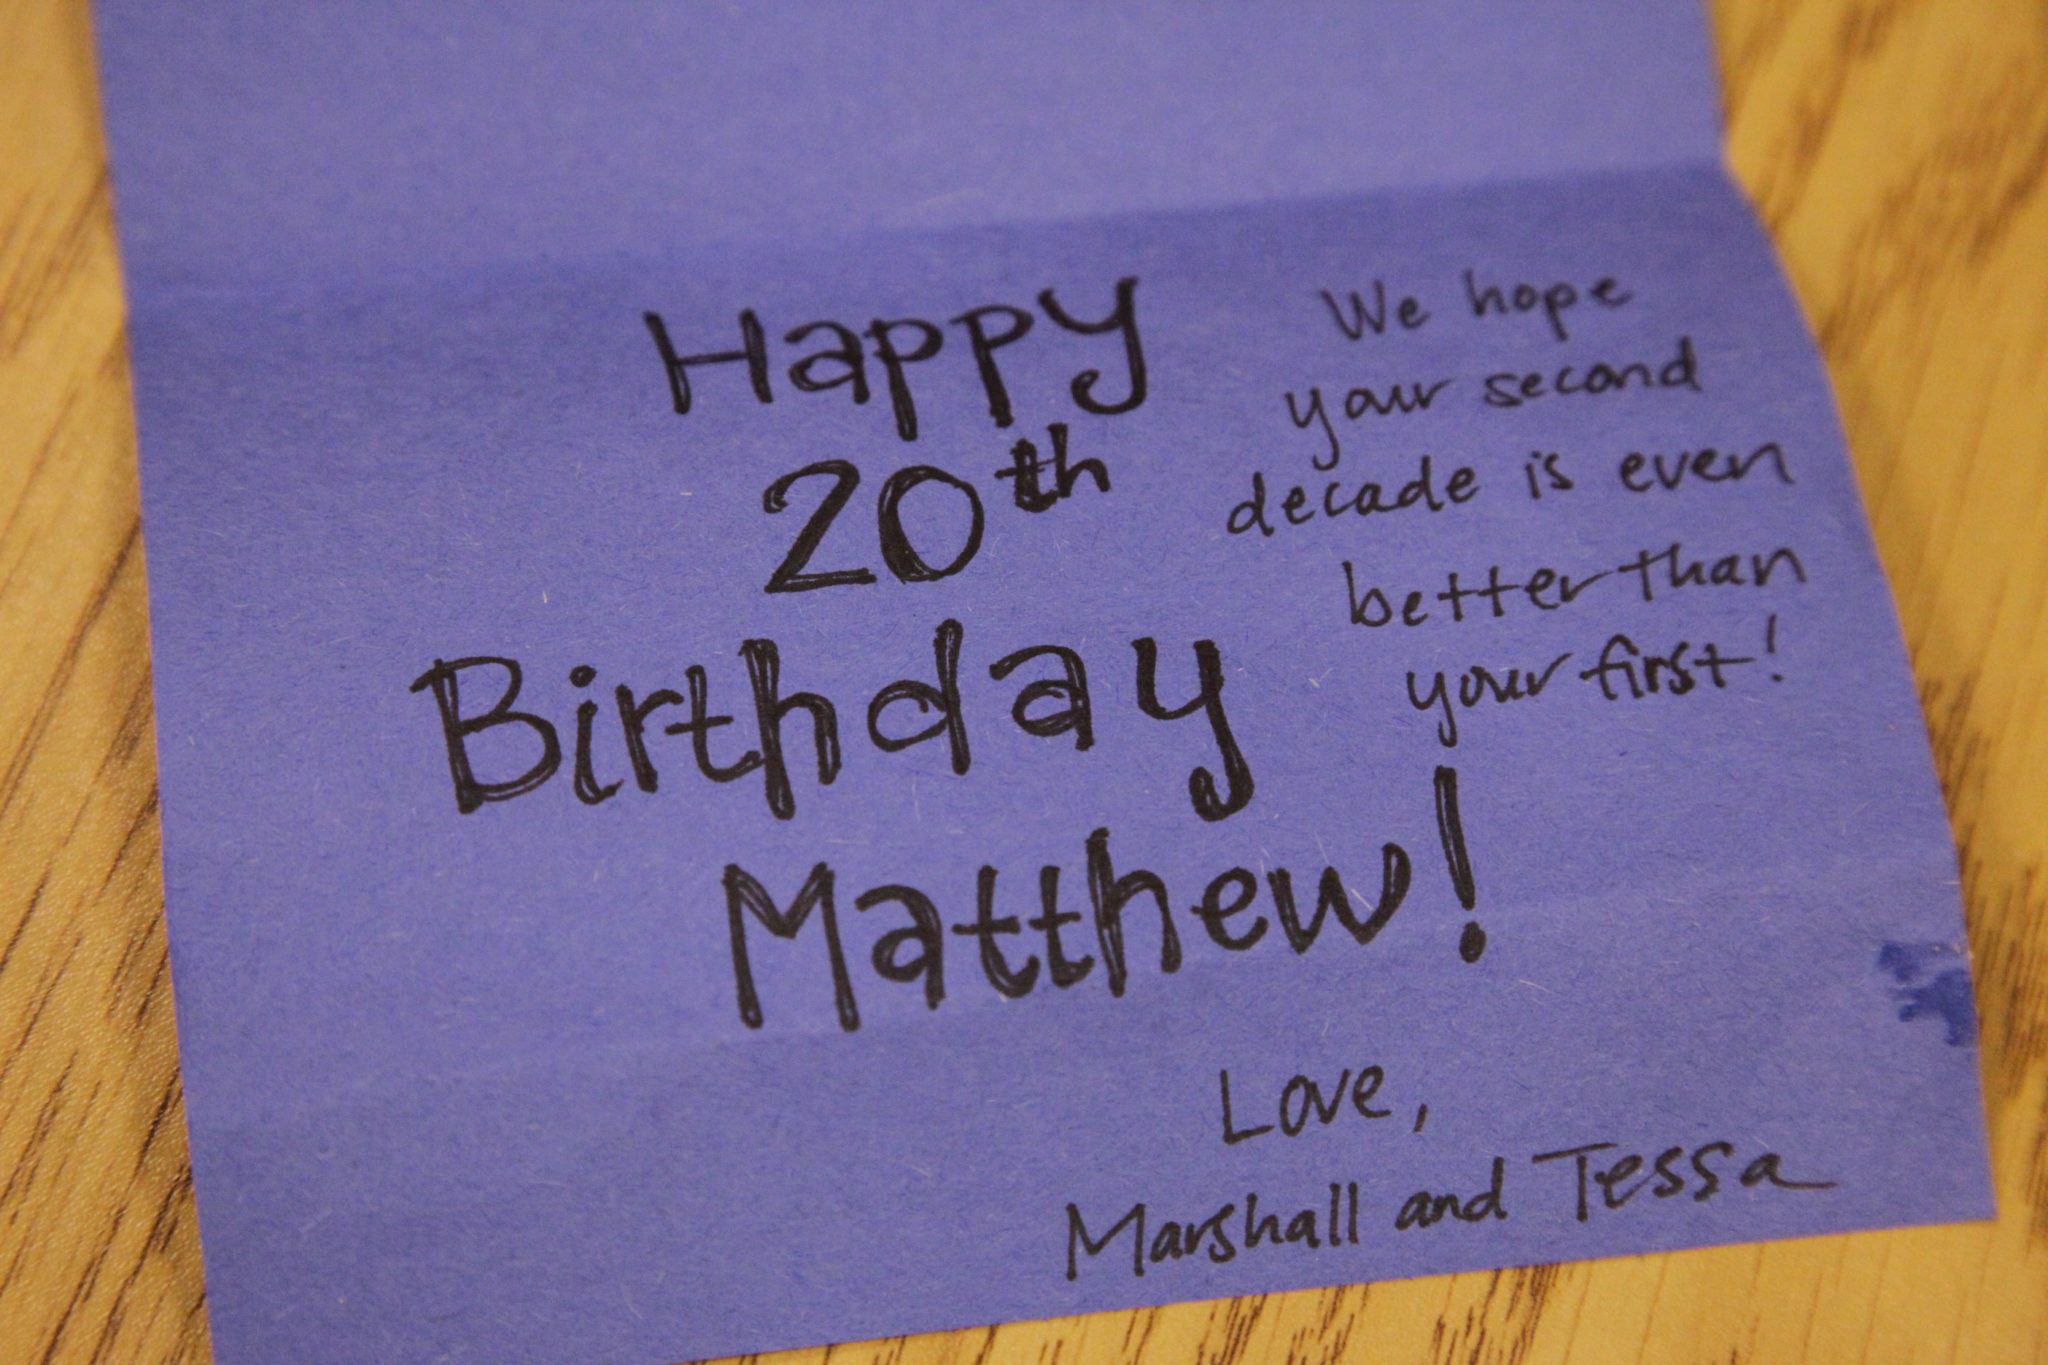 Happy
20th
Birthday
Matthew!
We hope
your second
decade is even
better than
your first!
Love,
Marshall and Tessa